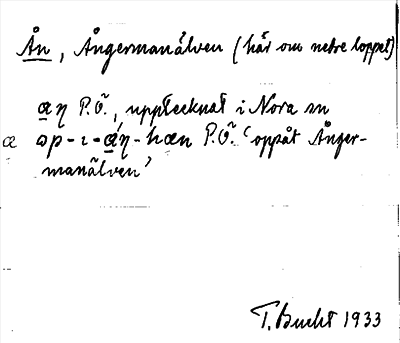 Ån, Ångermanälven (här om nedre loppet)
ɑŋ P.Ö., upptecknat i Nora sn
œ ɔp-ı-ɑ́ŋ-hœn P.Ö. 'oppåt Ånger-
manälven'
T. Bucht 1933